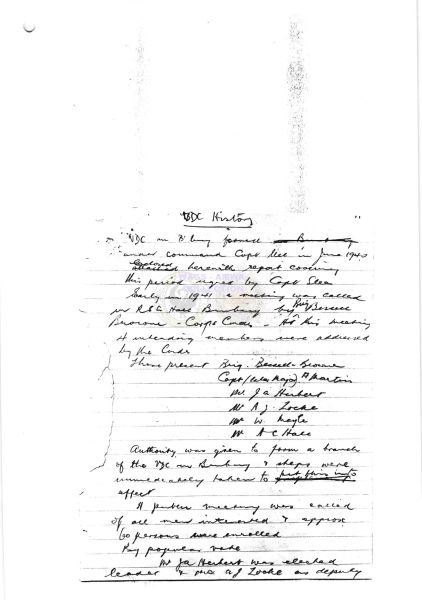 VDC History
VDC in B'bury formed
under command Capt in June 1940
Enclosed
attached herewith report covering
this period signed by Capt
Early in 1941 a meeting was called
in R S L Hall Bunbury by Brig Bessell
Browne - Corps Comdr - At this meeting
4 intending members were addressed
by the Comdr
Those present Brig. Bessell-Browne
Capt (later Major) Martin
Mr J A Herbert
Mr A J Locke
Mr W
Mr A C Hall
Authority was given to form a branch
of the VDC in Bunbury & steps were
immediately taken to put this into
effect
A public meeting was called
of all men interested & approx
60 persons were enrolled
By popular vote
Mr J A Herbert was elected
leader & Mr A J Locke as deputy